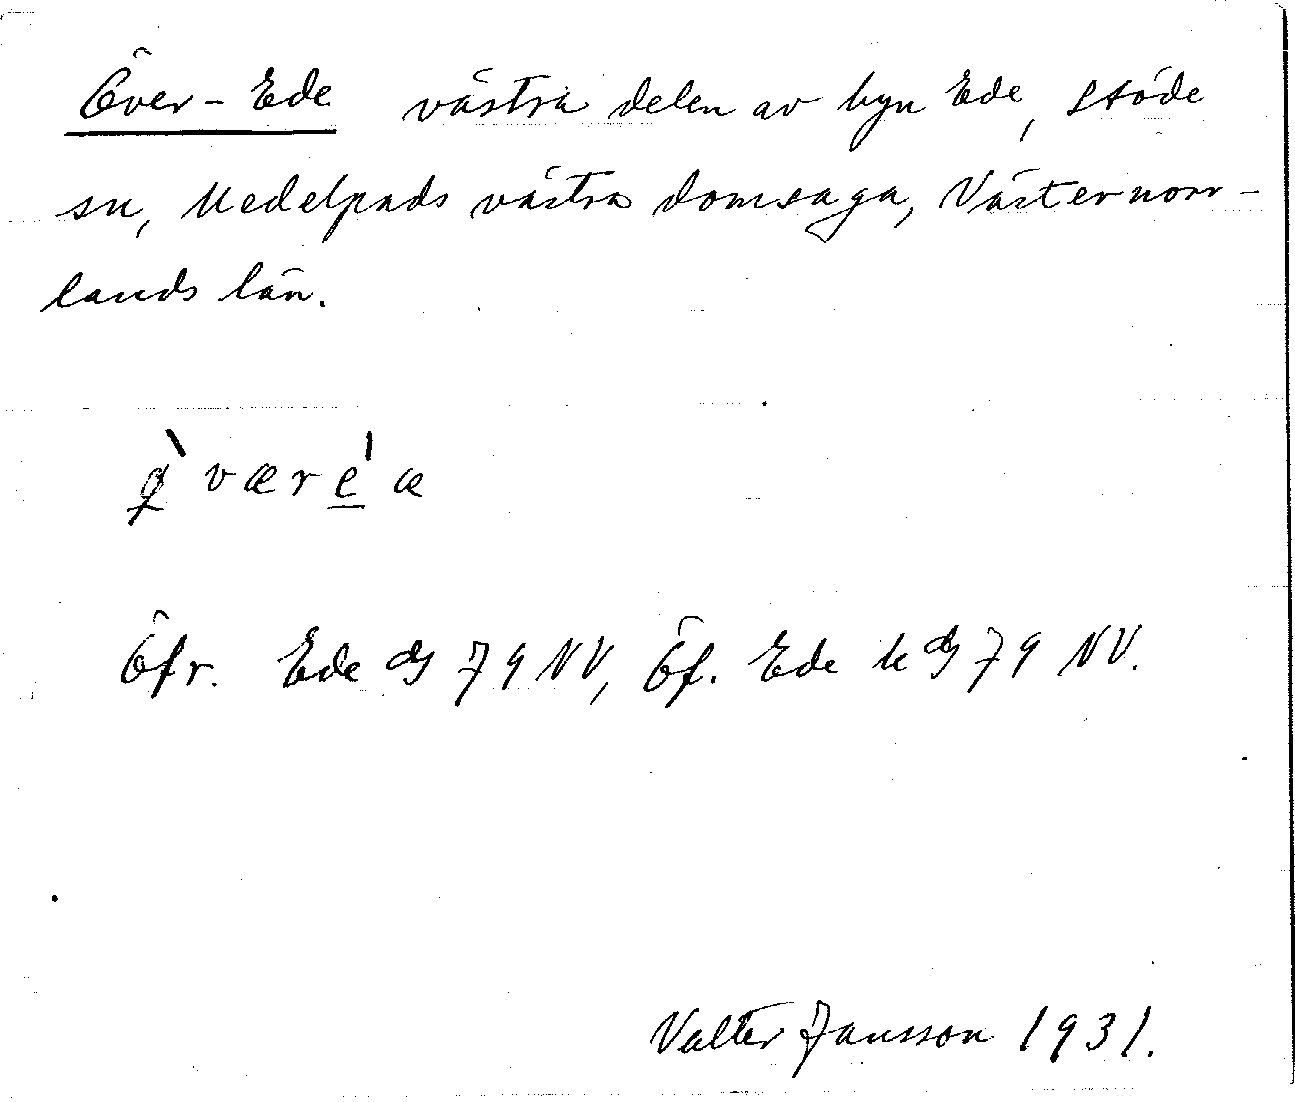 Över-Ede västra delen av byn Ede, Stöde
sn, Medelpads västra domsaga, Västernorr-
lands län.
ø̀være̲ˈæ
Öfr. Ede dg 79 NV, Öf. Ede k dg 79 NV.
Valter Jansson 1931.